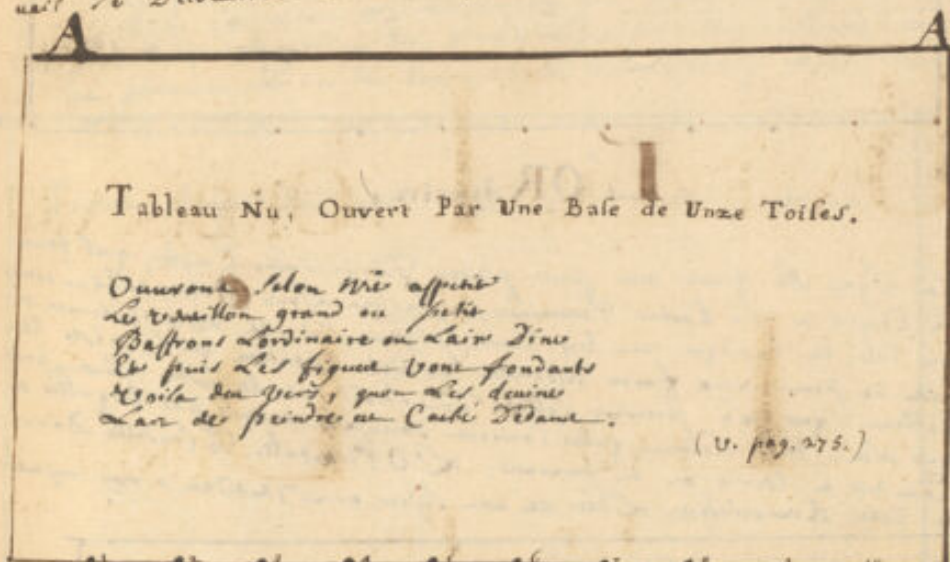 A A
Tableau Nu, Ouvert Par Une Base de Unze Toises.
Ouurons selon nrẽ appetit
Le pauillon grand ou petit
Baffrons Lordinaire ou Lair Dine
Et puis Les figues vont fondants
Voila des vers, quon Les deuine
Lar de peindre est Caché Dedans.
(v. pag. 275.)